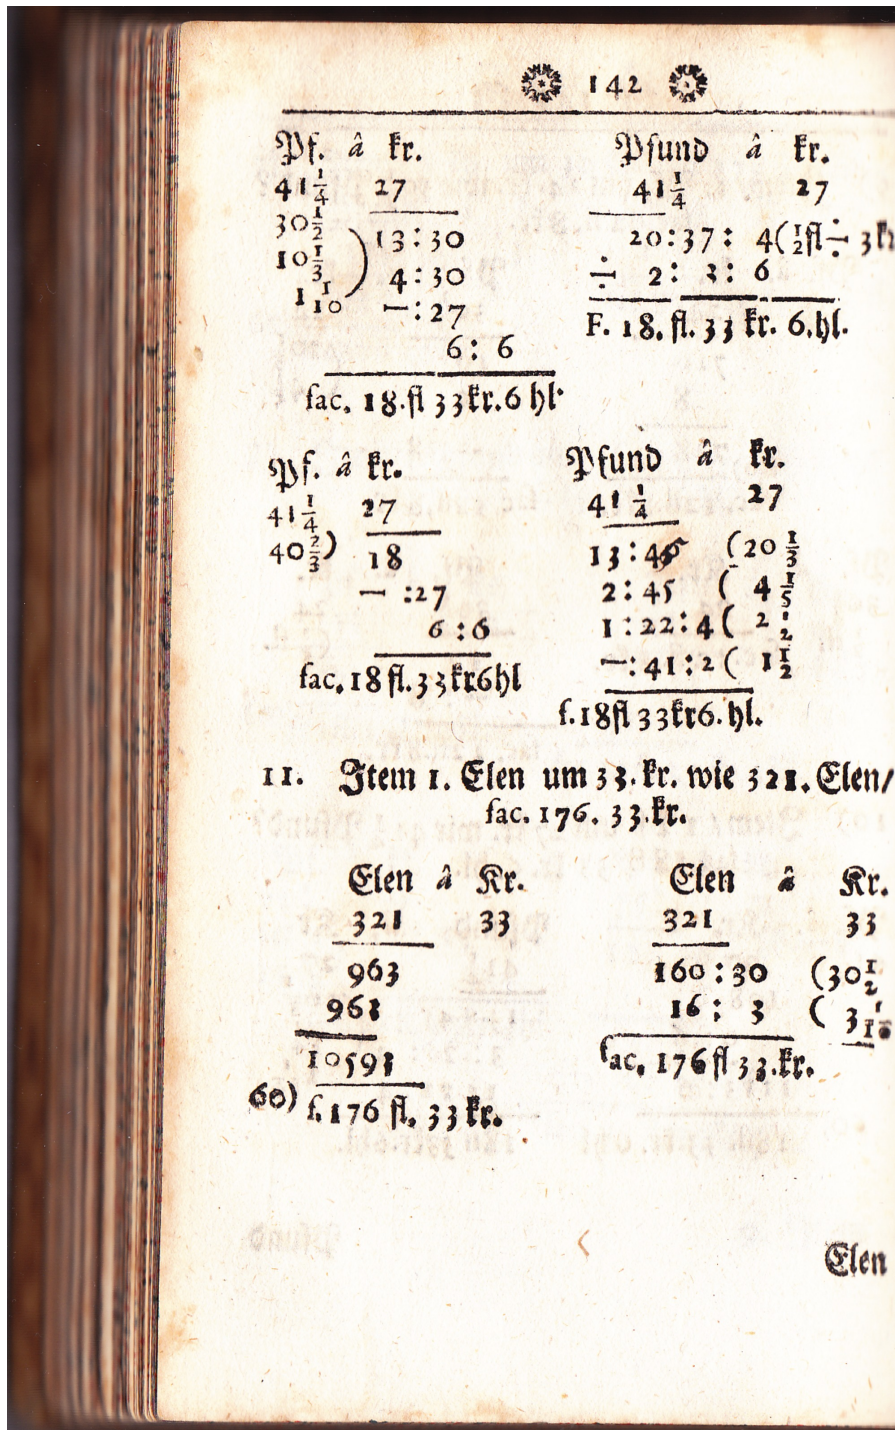 142
Pf. â kr.
41 1/4 27
30 1/2 13:30
10 1/3 ) 4:30
1 1/10 —:27
6: 6
fac. 18.fl 33kr.6 hl.
Pfund â kr.
41 1/4 27
20:37: 4(1/2fl÷ 3k
÷ 2: 3: 6
F. 18. fl. 33 kr. 6.hl.
Pf. â kr.
41 1/4 27
40 2/3) 18
— :27
6 :6
fac. 18 fl. 33kr.6hl
Pfund â kr.
41 1/4 27
13:45 (20 1/3
2:45 ( 4 1/5
1:22:4( 2 1/2
—:41:2( 1 1/2
f.18fl 33kr6. hl.
11. Item 1. Elen um 33. kr. wie 321. Elen/
fac. 176. 33.kr.
Elen â Kr.
321 33
963
963
10593
60) f. 176 fl. 33 kr.
Elen â Kr.
321 33
160:30 (30 1/2
16: 3 ( 3 1/10
fac. 176 fl 33.kr.
Elen